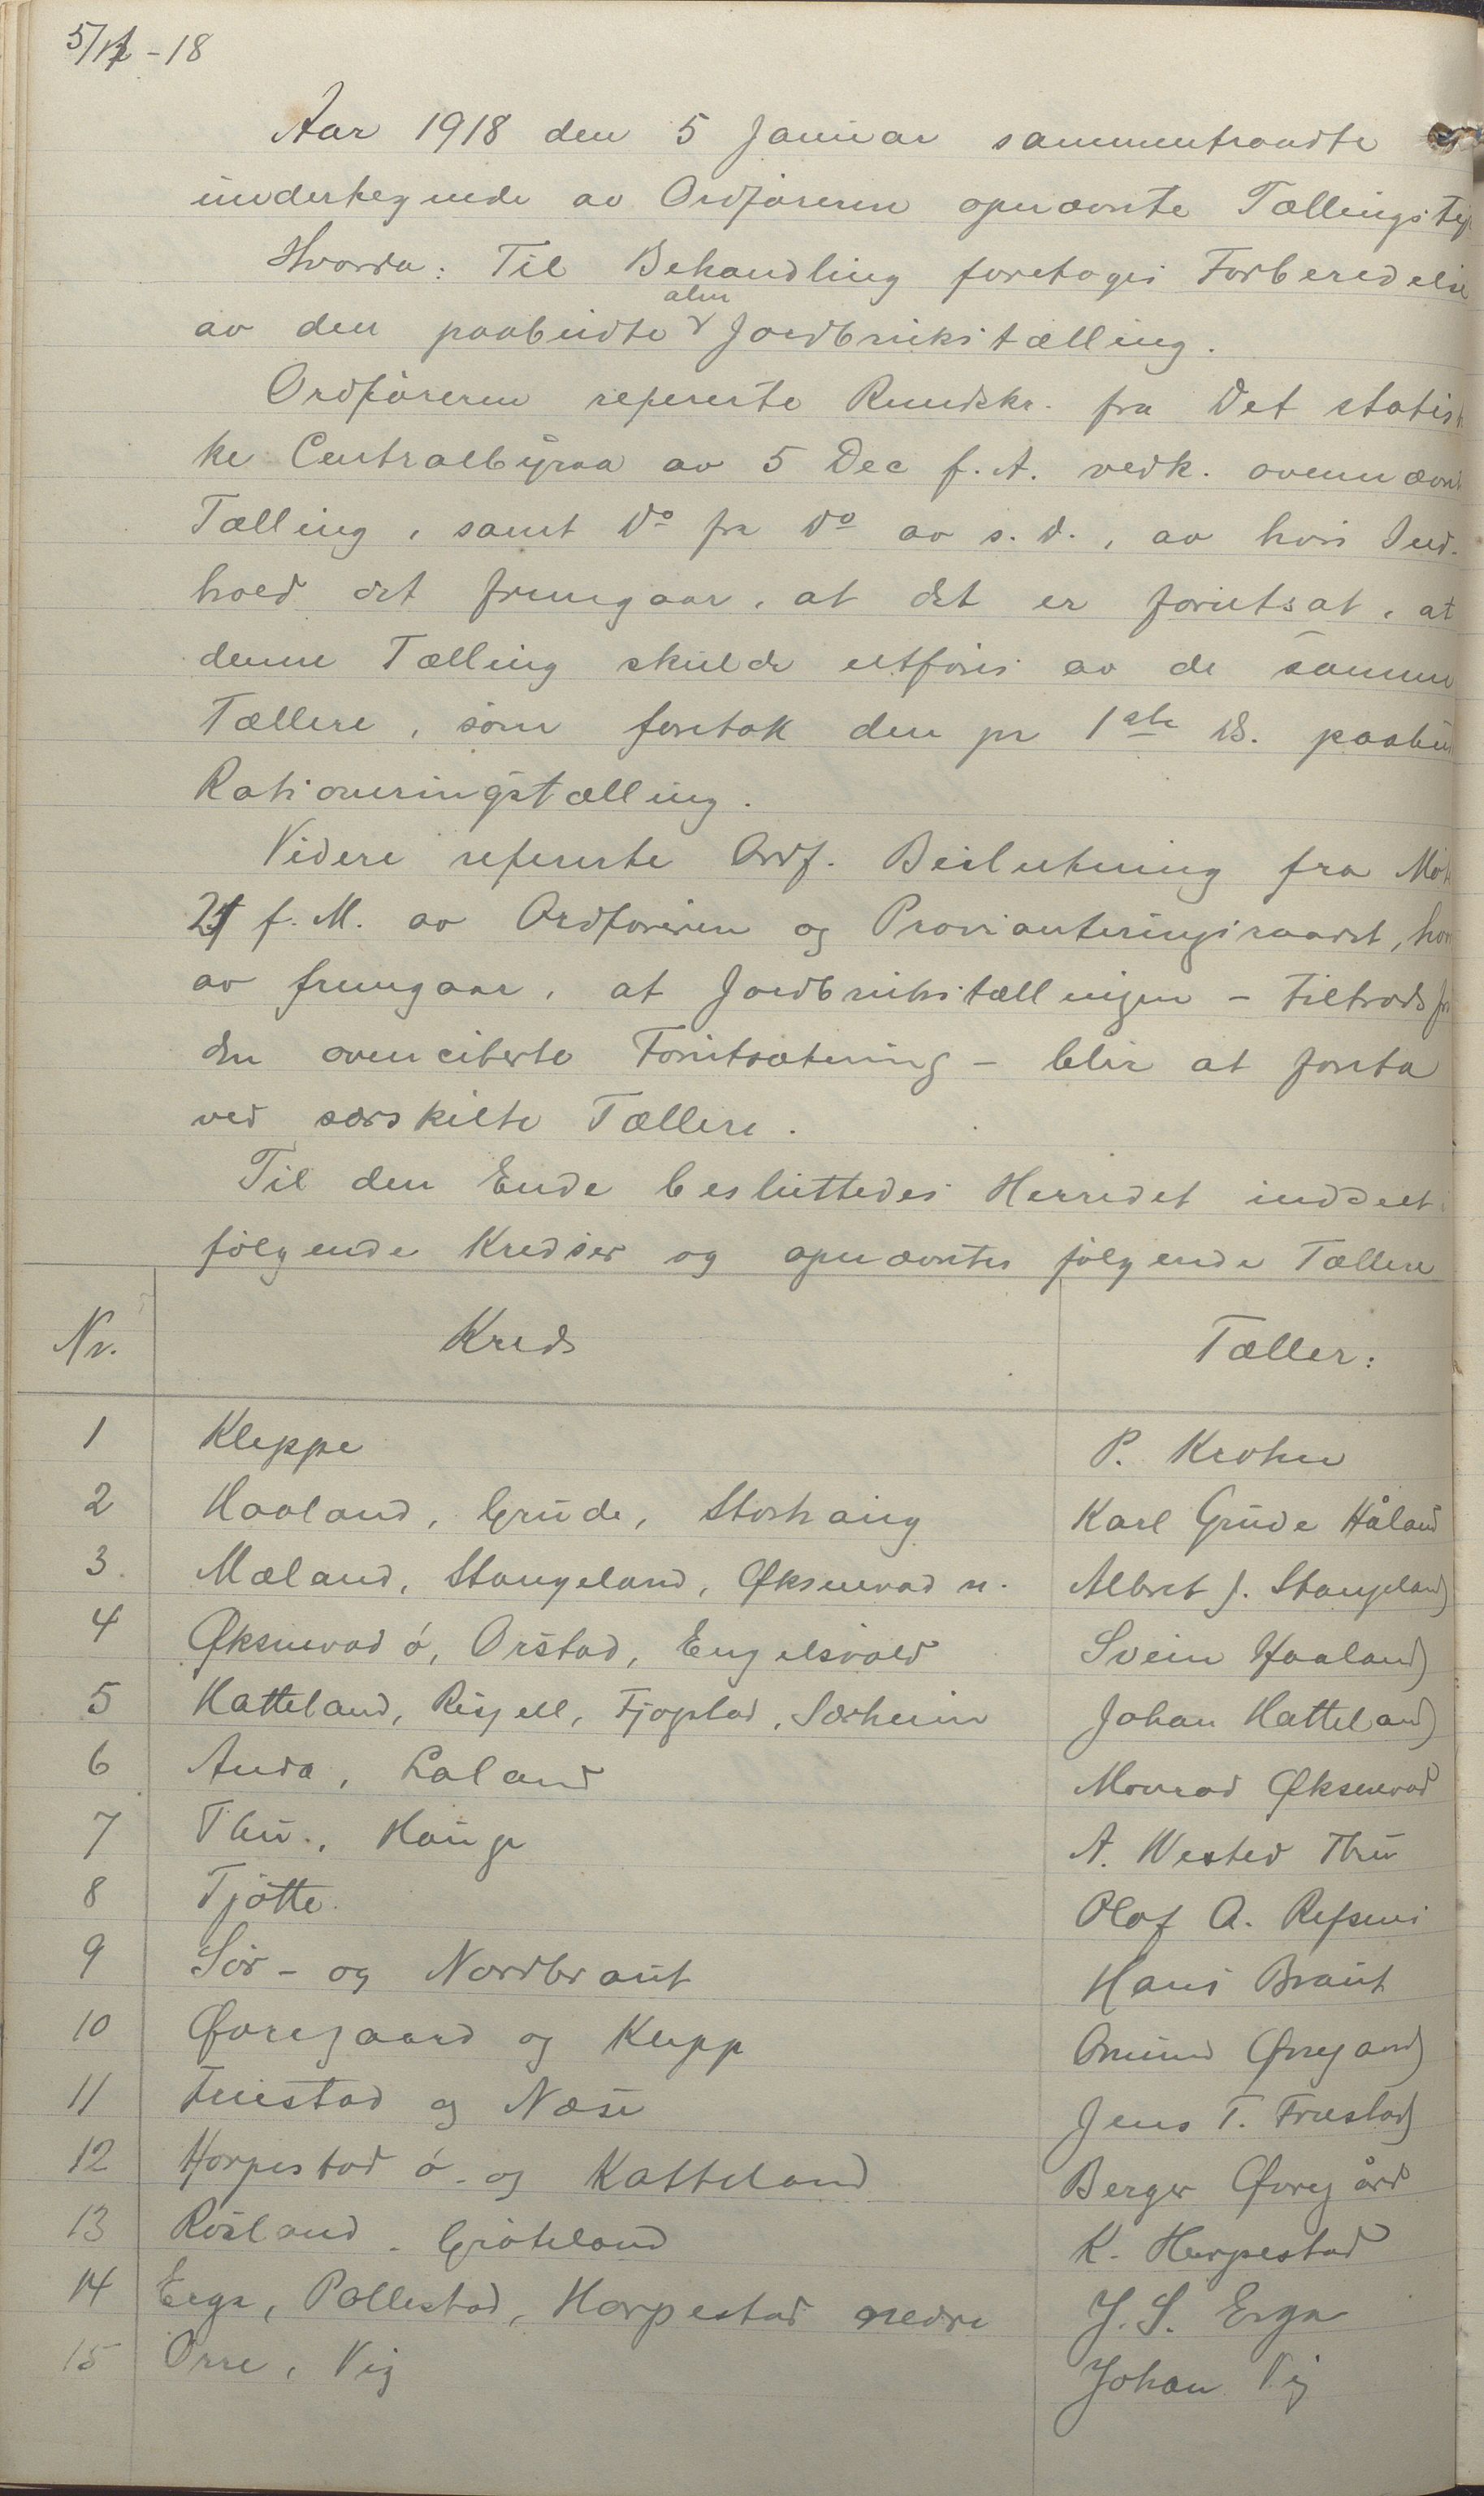 5/1-18
Aar 1918 den 5 Januar sammentraadte
undertegnede av Ordføreren opnævnte Tællings
Hvorda: Til Behandling foretoges Forberedelse
alm
av den paabudte Jordbrukstælling.
Ordføreren refererte Rundskr. fra Det statis
ke Centralbyraa av 5 Dec f. A. vedk. ovennævnt
Tælling, samt Do fra Do av s. d., av hvis Ind-
hold det fremgaar, at det er forutsat, at
denne Tælling skulde utføres av de samme
Tællere, som foretok den pr 1ste ds. paabu
Rationeringstælling.
Videre refererte Ordf. Beslutning fra Møt
f. M. av Ordføreren og Provianteringsraadet, hvor
av fremgaar, at Jordbrukstællingen - tiltrods for
den ovenciterte Forutsætning - blir at foreta
ved særskilte Tællere.
Til den Ende besluttedes Herredet inddelt i
følgende Kredser og opnævntes følgende Tællere
Nr. Kreds Tæller:
1 Kleppe P. Krohn
2 Haaland, Grude, Storhaug Karl Grude Håland
3. Mæland, Stangeland, Øksnevad n. Albret J. Stangeland
4 Øksnevad ø, Orstad, Engelsvold Svein Haaland
5 Hatteland, Risjell, Fjogstad, Særheim Johan Hatteland
6 Anda, Laland Monrad Øksnevad
7 Thu., Hauge A. Wested Thu
8 Tjøtte. Olaf A. Refsnes
9 Sør- og Nordbraut Hans Braut
10 Øvregaard og Kleppe Omund Øvregaard
11 Fuestad og Næse Jens T. Fruestad
12 Horpestad ø. og Katteland Berger Øvregård
13 Rosland. Grøteland K. Horpestad
14 Erga, Pollestad, Horpestad nedre J. S. Erga
15 Orre, Vig Johan Vig